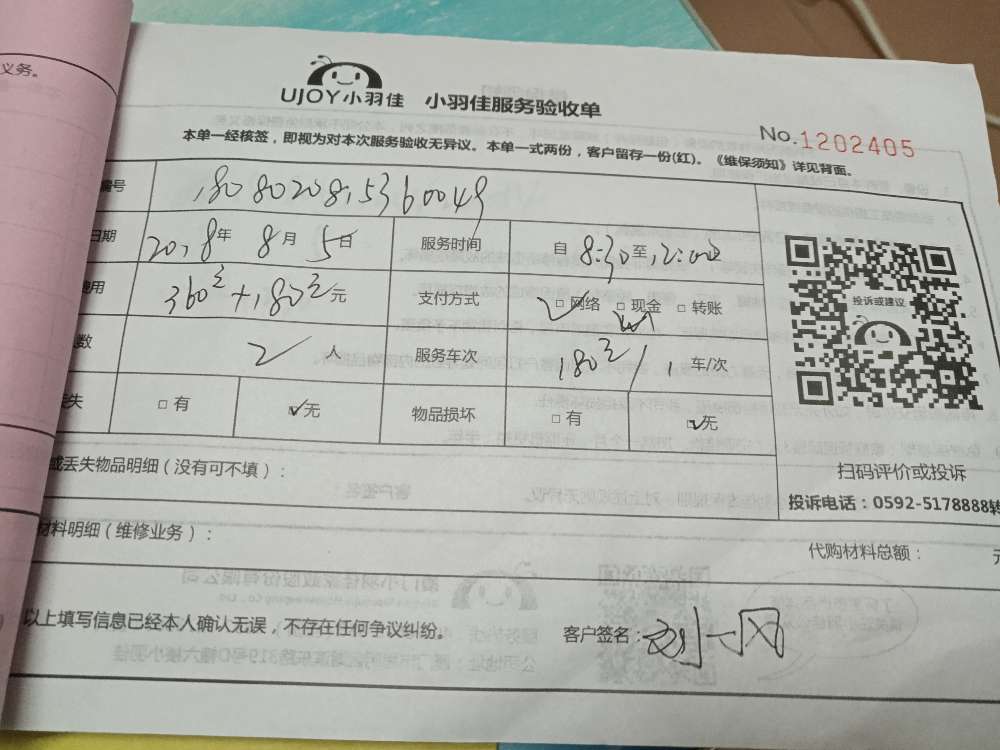 义务。
UJOY小羽佳 小羽佳服务验收单
No.1202405
本单一经核签，即视为对本次服务验收无异议。本单一式两份，客户留存一份(红)。《维保须知》详见背面。
编号 1808020815360049
日期 2018年 8月 5日 服务时间 自 8:30 至 12:00
费用 360元+180元 元 支付方式 □网络 □现金 □转账
数 2 人 服务车次 180元/1 车/次
丢失 □有 ☑无 物品损坏 □有 ☑无
投诉或建议
扫码评价或投诉
投诉电话：0592-5178888转
或丢失物品明细（没有可不填）：
材料明细（维修业务）： 代购材料总额： 元
以上填写信息已经本人确认无误，不存在任何争议纠纷。 客户签名：刘一风